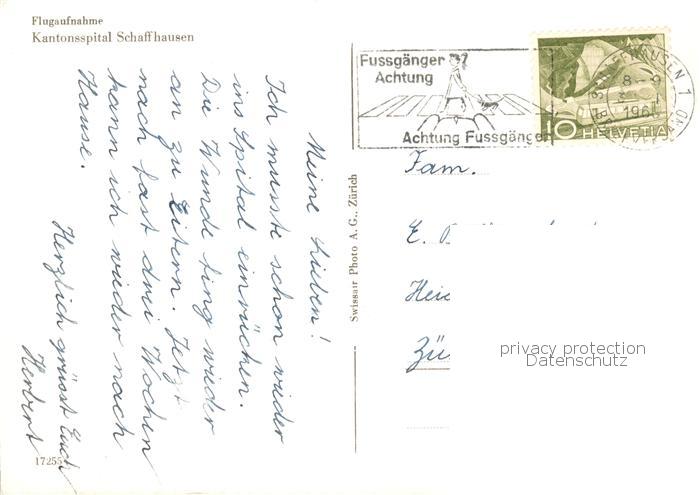 Flugaufnahme
Kantonsspital Schaffhausen
Meine Lieben!
Ich musste schon wieder
ins Spital einrücken.
Die Wunde fing wieder
an zu Eitern. Jetzt
nach fast drei Wochen
kann ich wieder nach
Hause.
Herzlich grüsst Euch
Herbert
17255
Swissair Photo A. G., Zürich
Fussgänger
Achtung
Achtung Fussgänger
10 HELVETIA
Fam.
E.
privacy protection
Datenschutz